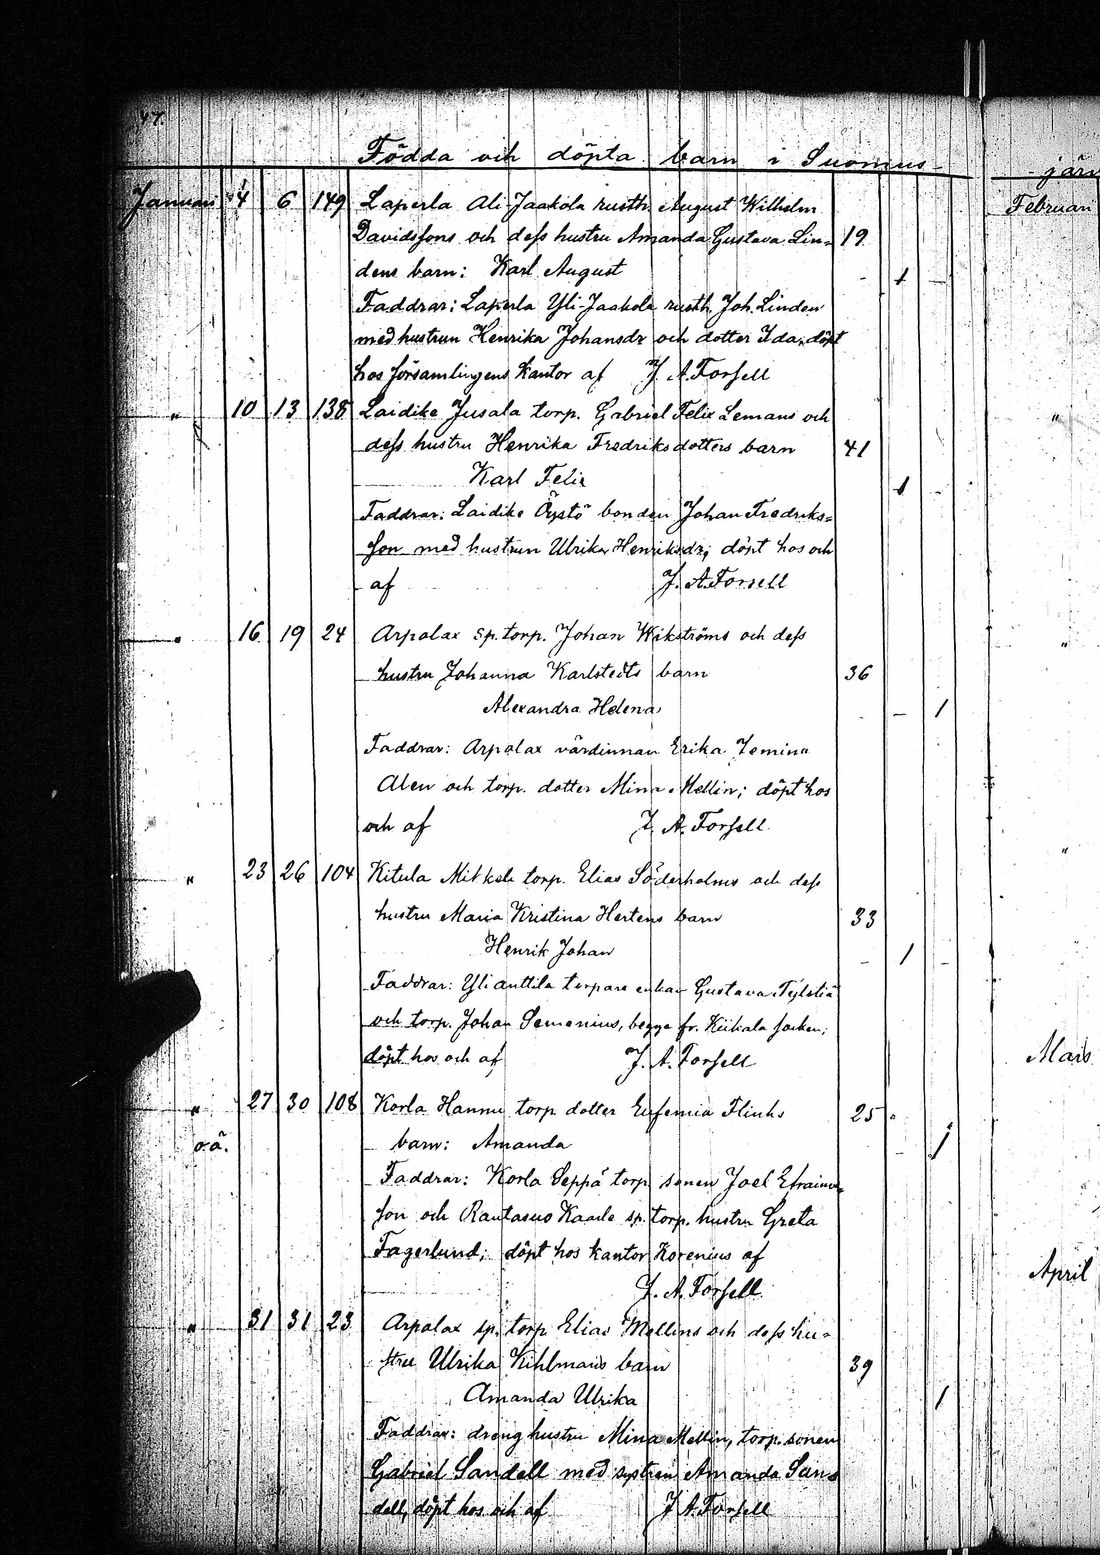 47.
Födda och döpta barn i Suomus-
järv
Januari 4 6 149 Laperla Ali-Jaakola rusth. August Wilhelm
Davidsfons och defs hustru Amanda Gustava Lin= 19
dens barn: Karl August
1 -
Faddrar: Laperla Yli-Jaakola rusth. Joh. Linden
med hustrun Henrika Johansdr och dotter Ida, döpt
hos församlingens Kantor af J. A. Forsell
" 10 13 138 Laidike Jusala torp. Gabriel Felix Lemans och
defs hustru Henrika Fredriksdotters barn 41
Karl Felix
1 -
Faddrar: Laidike Öystö bonden Johan Fredriks=
fon med hustrun Ulrika Henriksdr; döpt hos och
af J. A. Forsell
" 16 19 24 Arpalax sp. torp. Johan Wikströms och defs
hustru Johanna Karlstedts barn 36
Alexandra Helena
- 1
Faddrar: Arpalax värdinnan Erika Jemina
Alen och torp. dotter Mina Mellin; döpt hos
och af J. A. Forsell
" 23 26 104 Kitula Mikkeli torp. Elias Söderholms och defs
hustru Maria Kristina Hertens barn 33
Henrik Johan
- 1 -
Faddrar: Ylianttila torpare enkan Gustava
och torp. Johan Semenius, begge fr. Kiikala socken;
döpt hos och af J. A. Forsell
" 27 30 108 Korla Hannu torp. dotter Eufemia Flinks 25
o.ä. barn: Amanda
1
Faddrar: Korla Seppä torp. sonen Joel Efraims=
fon och Rautasuo Kaarle sp. torp. hustru Greta
Fagerlund; döpt hos kantor Korenius af
J. A. Forsell
" 31 31 23 Arpalax sp. torp. Elias Mellins och defs hu=
stru Ulrika Kihlmans barn 39
Amanda Ulrika
1
Faddrar: dreng hustru Mina Mellin, torp. sonen
Gabriel Sandell med systren Amanda San=
dell, döpt hos och af J. A. Forsell
Februari
"
"
"
Mars
April